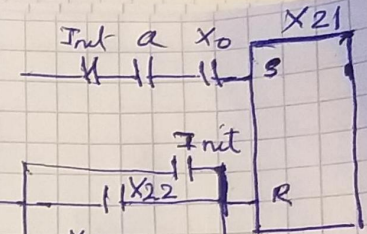 X21
Init a X0
S
Init
X22
R